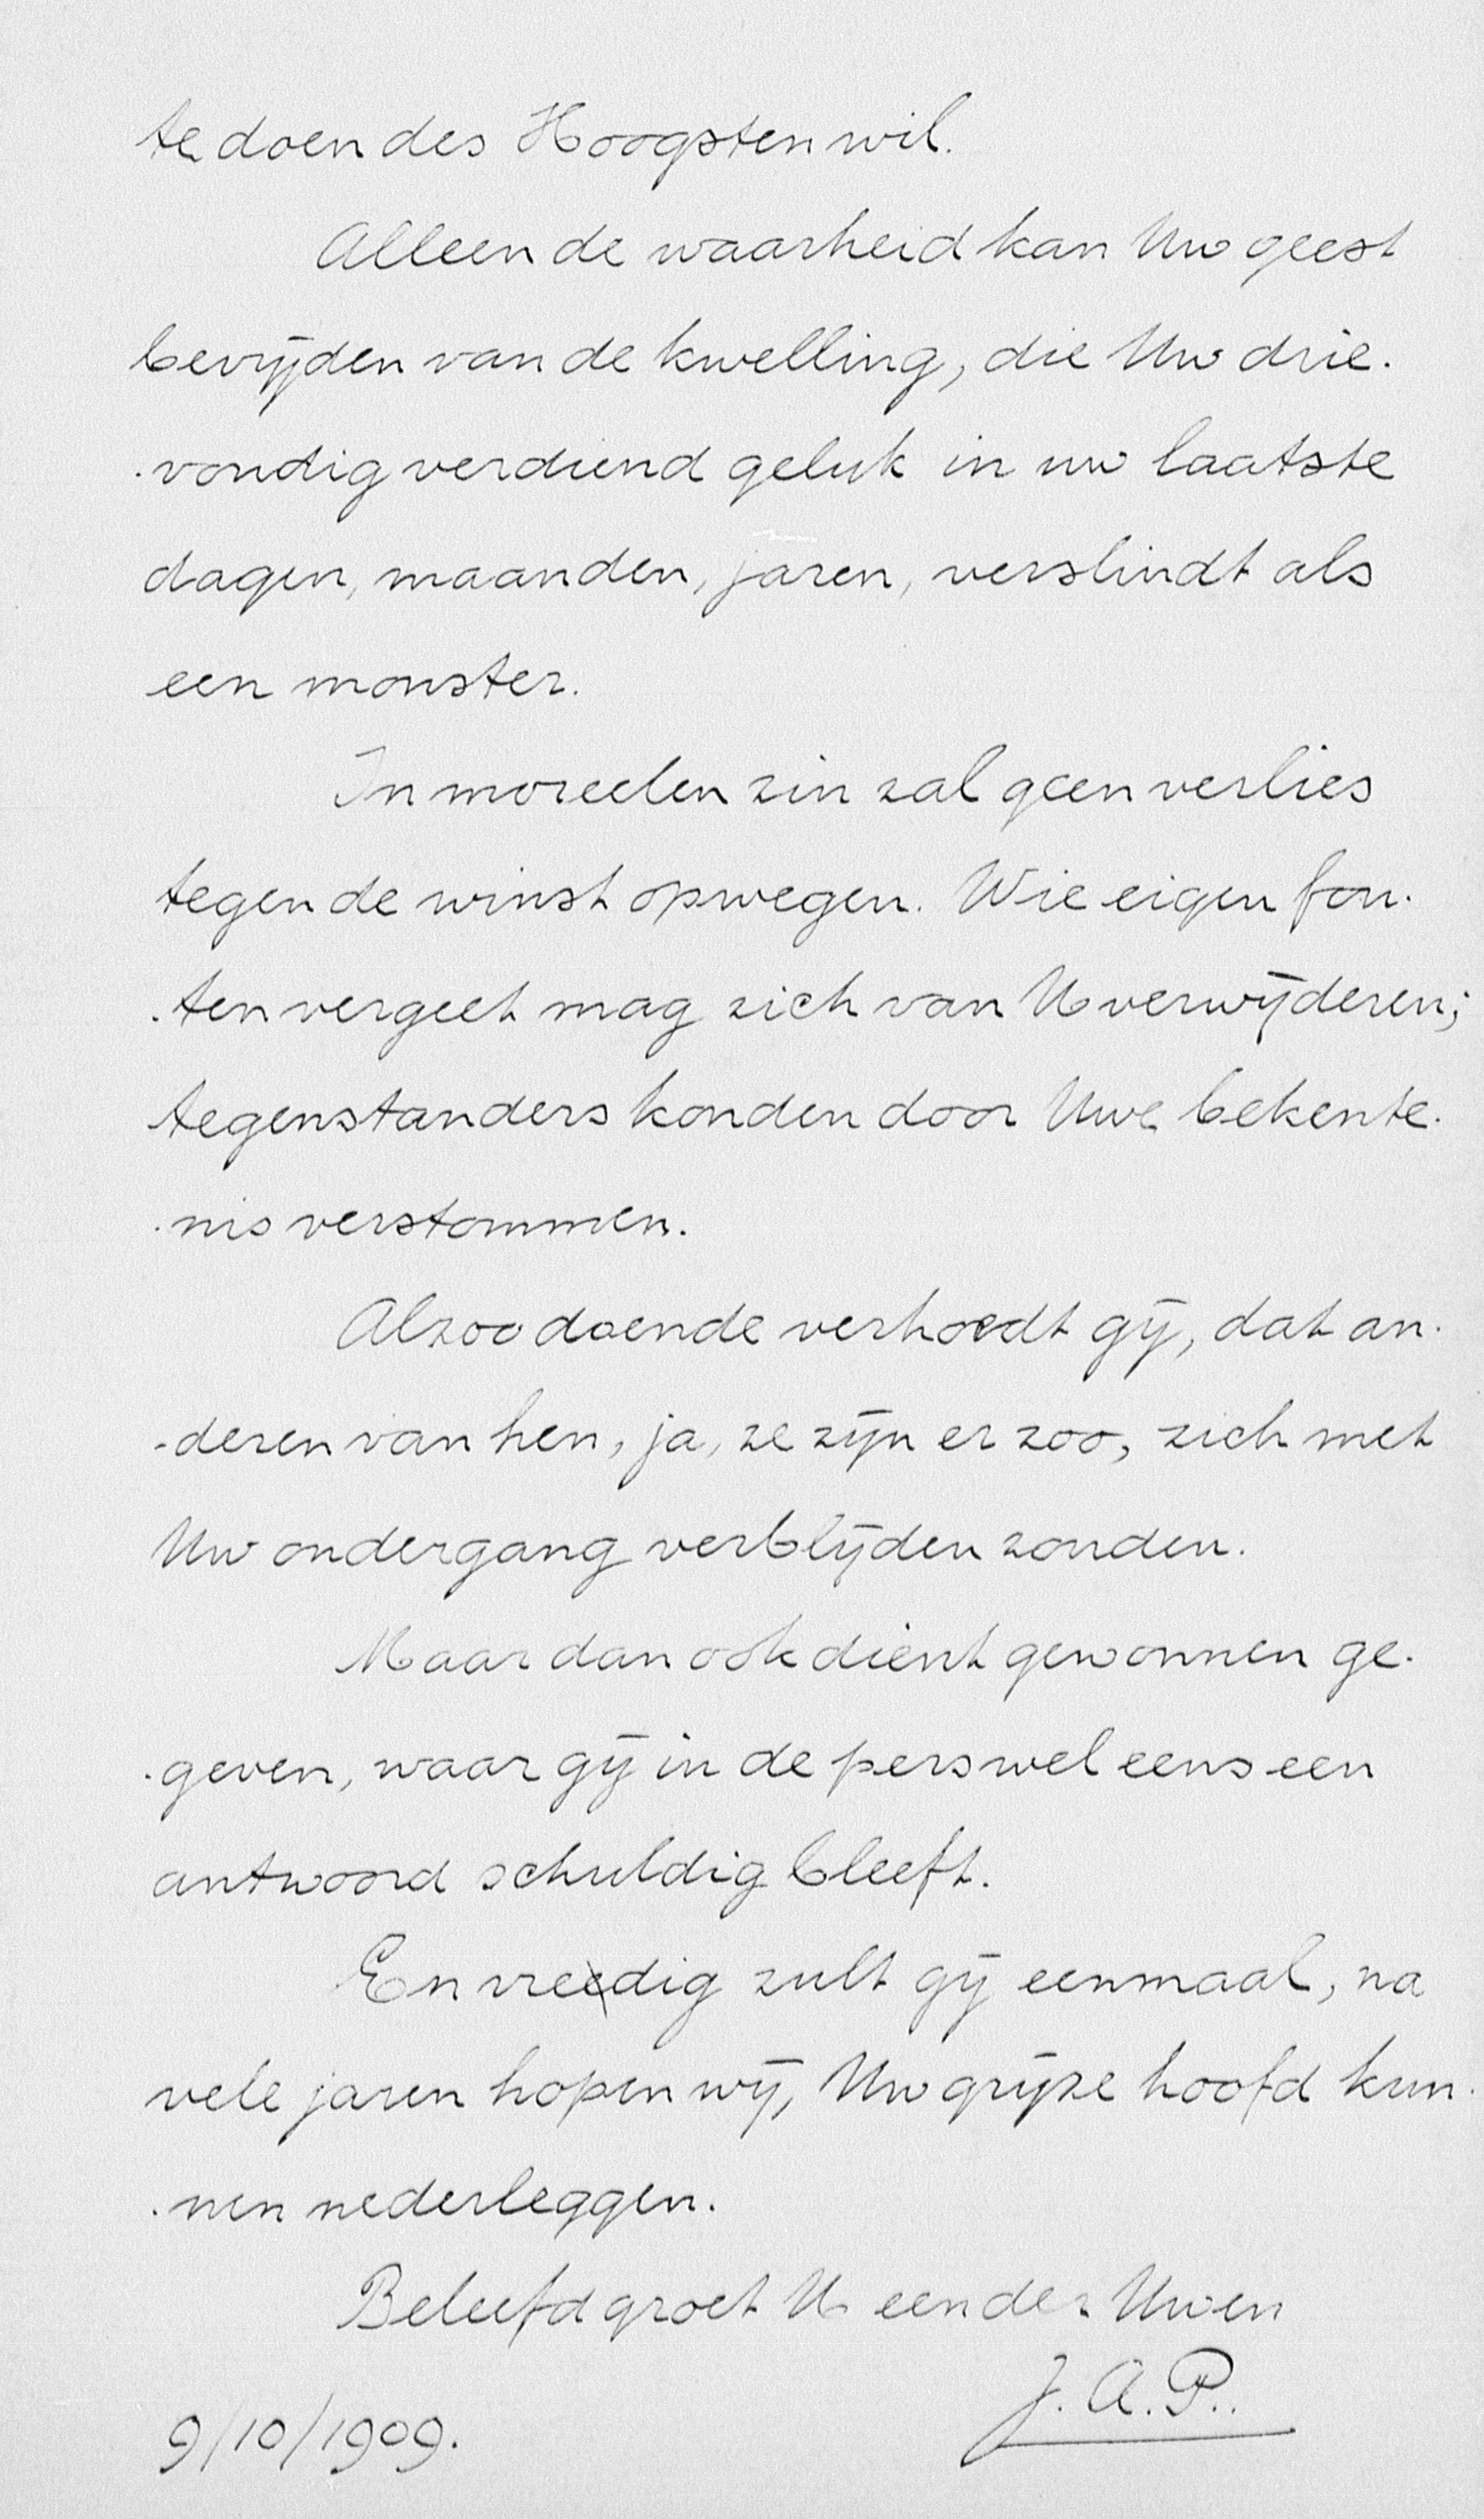 te doen des Hoogsten wil.
Alleen de waarheid kan Uw geest
bevrijden van de kwelling, die Uw drie-
-voudig verdiend geluk in uw laatste
dagen, maanden, jaren, verslindt als
een monster.
In moreelen zin zal geen verlies
tegen de winst opwegen. Wie eigen fou-
-ten vergeet mag zich van U verwijderen;
tegenstanders konden door Uwe bekente-
-nis verstommen.
Alzoo doende verhoedt gij, dat an-
-deren van hen, ja, ze zijn er zoo, zich met
Uw ondergang verblijden zouden.
Maar dan ook dient gewonnen ge-
-geven, waar gij in de pers wel eens een
antwoord schuldig bleeft.
En vreedig zult gij eenmaal, na
vele jaren hopen wij, Uw grijze hoofd kun-
-nen nederleggen.
Beleefd groet U een der Uwen
J. A. P..
9/10/1909.